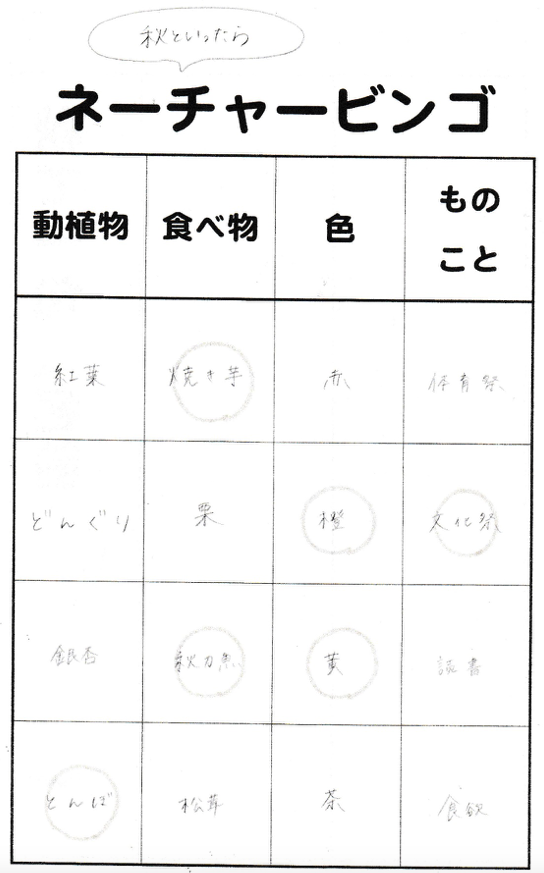 秋といったら
ネーチャービンゴ
動植物 食べ物 色 もの
こと
紅葉 焼き芋 赤 体育祭
どんぐり 栗 橙 文化祭
銀杏 秋刀魚 黄 読書
とんぼ 松茸 茶 食欲